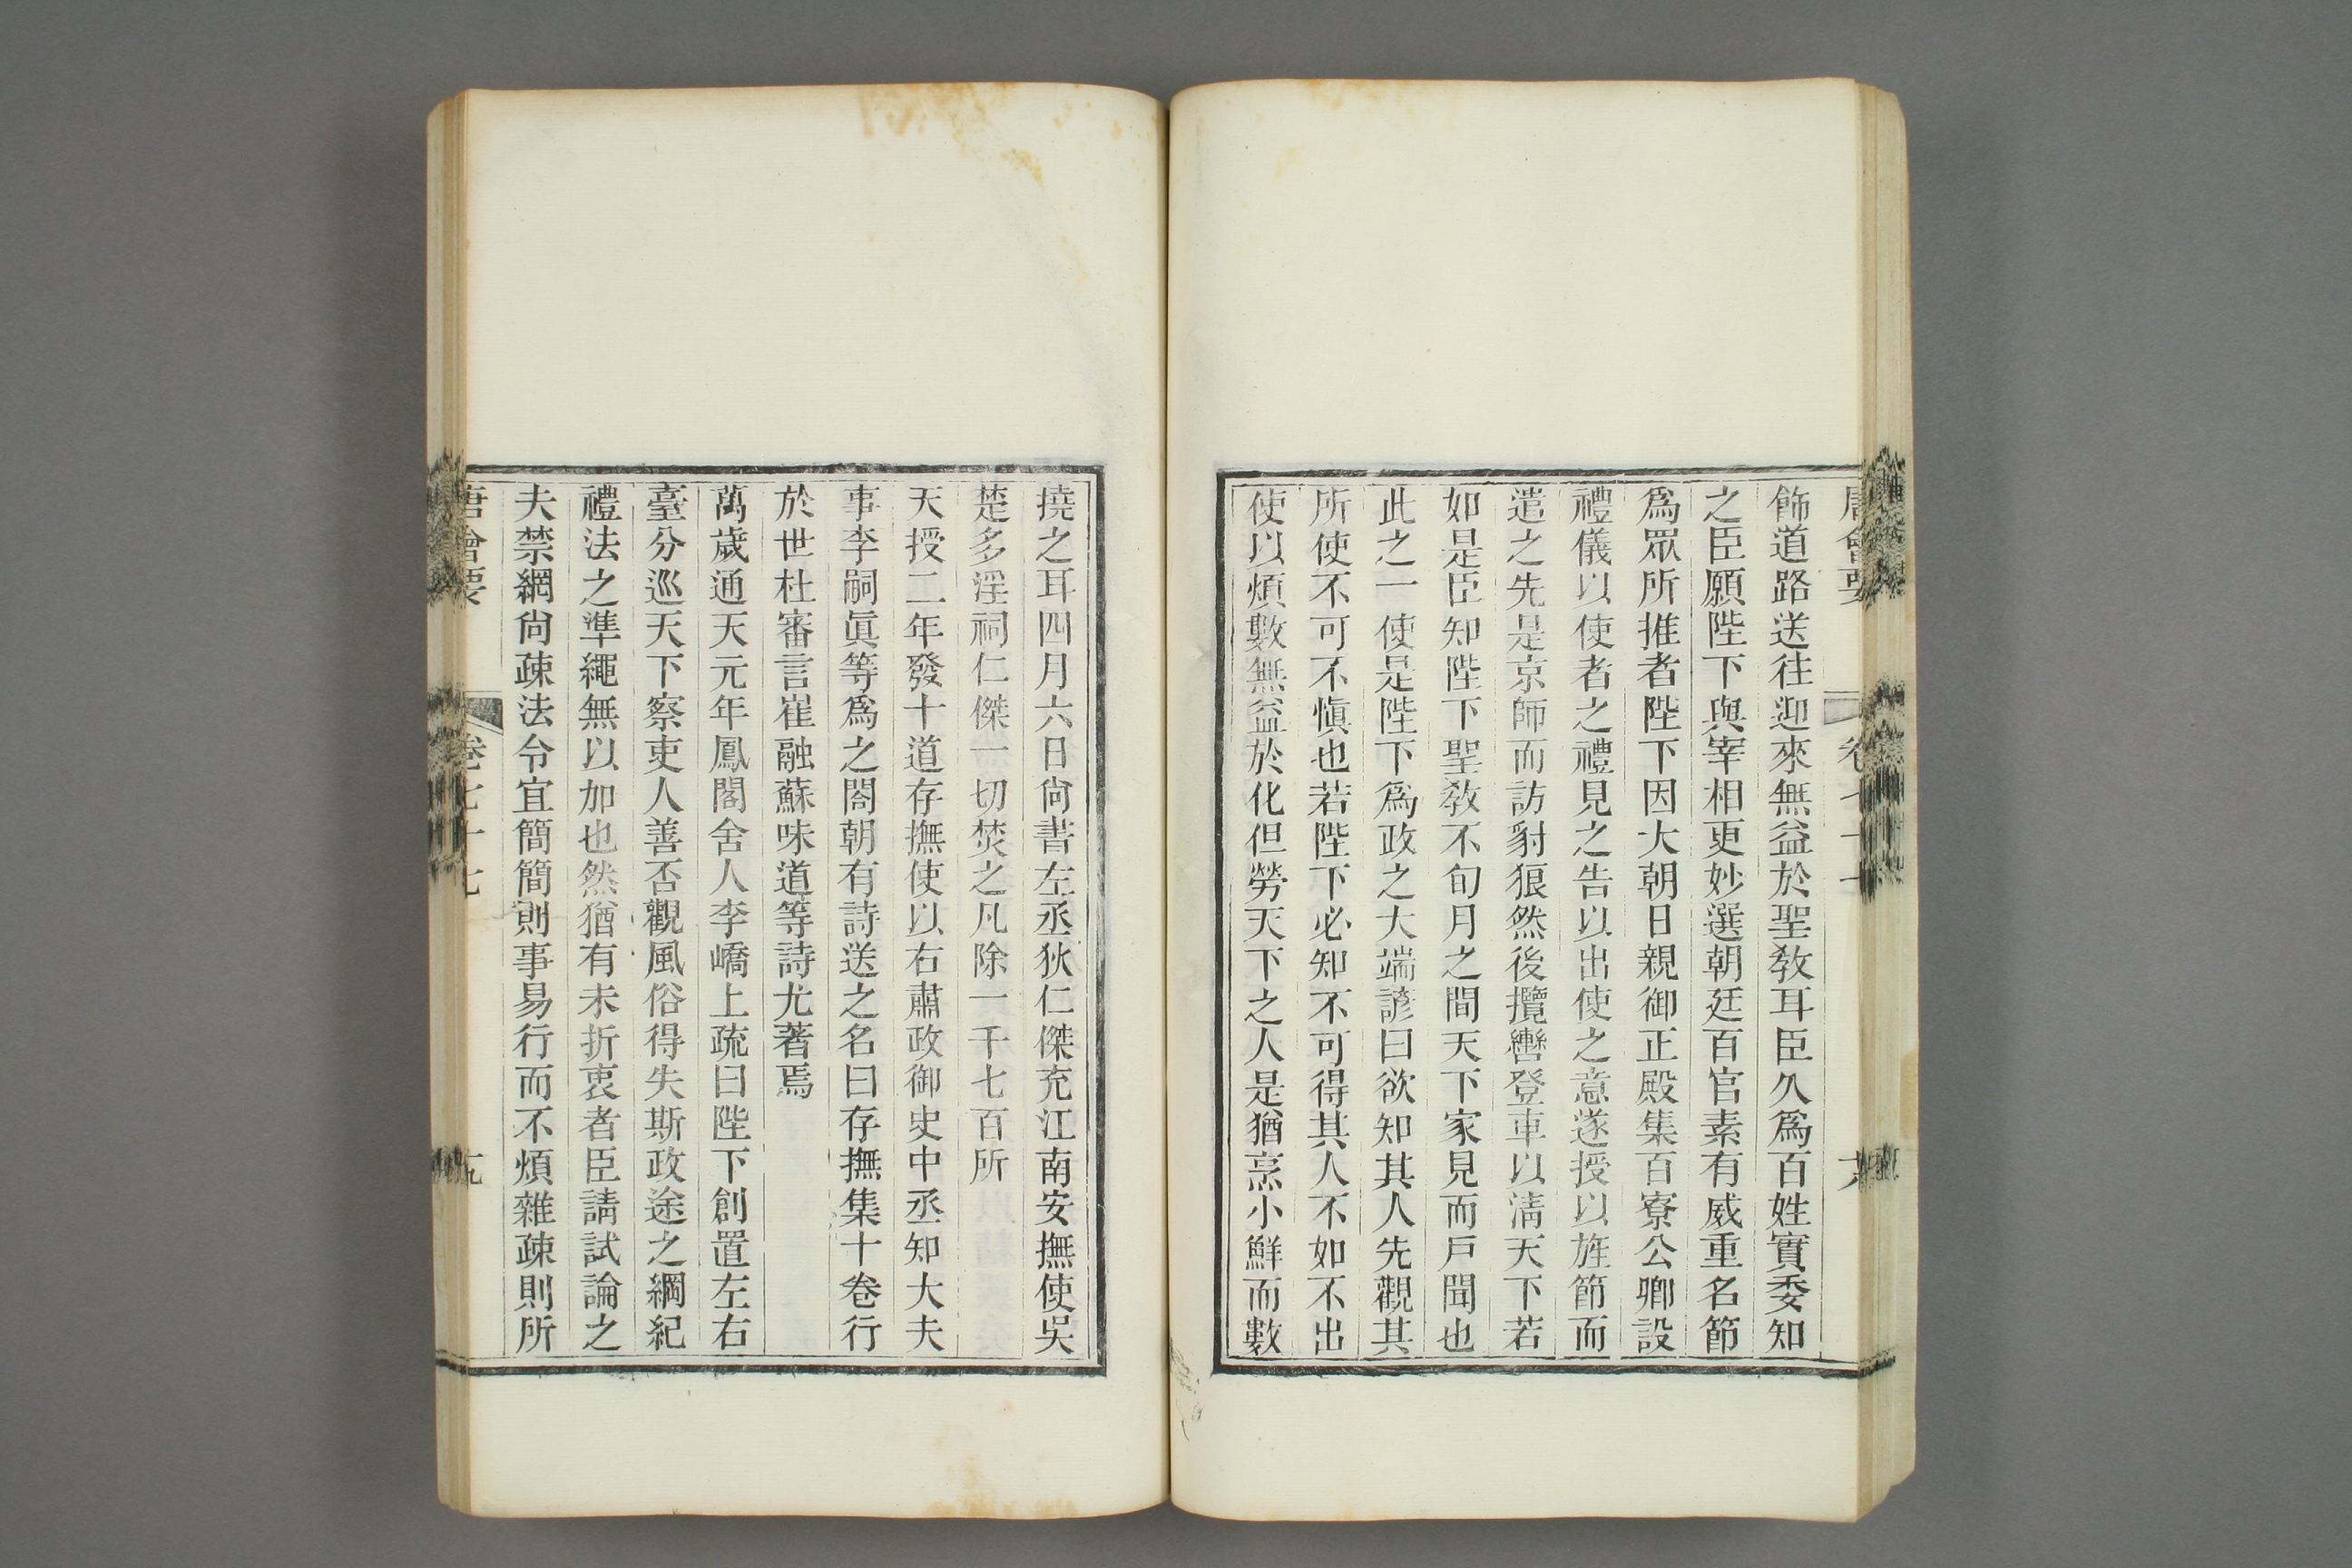 唐會要 卷七十七 六
飾道路送往迎來無益於聖敎耳臣久爲百姓實委知
之臣願陛下與宰相更妙選朝廷百官素有威重名節
爲眾所推者陛下因大朝日親御正殿集百寮公卿設
禮儀以使者之禮見之告以出使之意遂授以旌節而
遣之先是京師而訪豺狼然後攬轡登車以淸天下若
如是臣知陛下聖敎不旬月之間天下家見而戶聞也
此之一使是陛下爲政之大端諺曰欲知其人先觀其
所使不可不愼也若陛下必知不可得其人不如不出
使以煩數無益於化但勞天下之人是猶烹小鮮而數
撓之耳四月六日尙書左丞狄仁傑充江南安撫使吳
楚多淫祠仁傑一切焚之凡除一千七百所
天授二年發十道存撫使以右肅政御史中丞知大夫
事李嗣眞等爲之閤朝有詩送之名曰存撫集十卷行
於世杜審言崔融蘇味道等詩尤著焉
萬歲通天元年鳳閣舍人李嶠上疏曰陛下創置左右
臺分巡天下察吏人善否觀風俗得失斯政途之綱紀
禮法之準繩無以加也然猶有未折衷者臣請試論之
夫禁網尙疎法令宜簡簡則事易行而不煩雜疎則所
唐會要 卷七十七